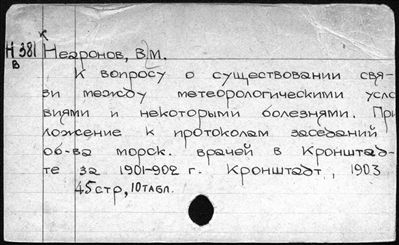 К
Н 381 Неаронов, В.М.
В
К вопросу о существовании свя-
зи между метеорологическими усло
виями и некоторыми болезнями. При
ложение к протоколам заседаний
об-ва морск. врачей в Кронштад-
те за 1901-902 г. Кронштадт, 1903
45 стр, 10 табл.